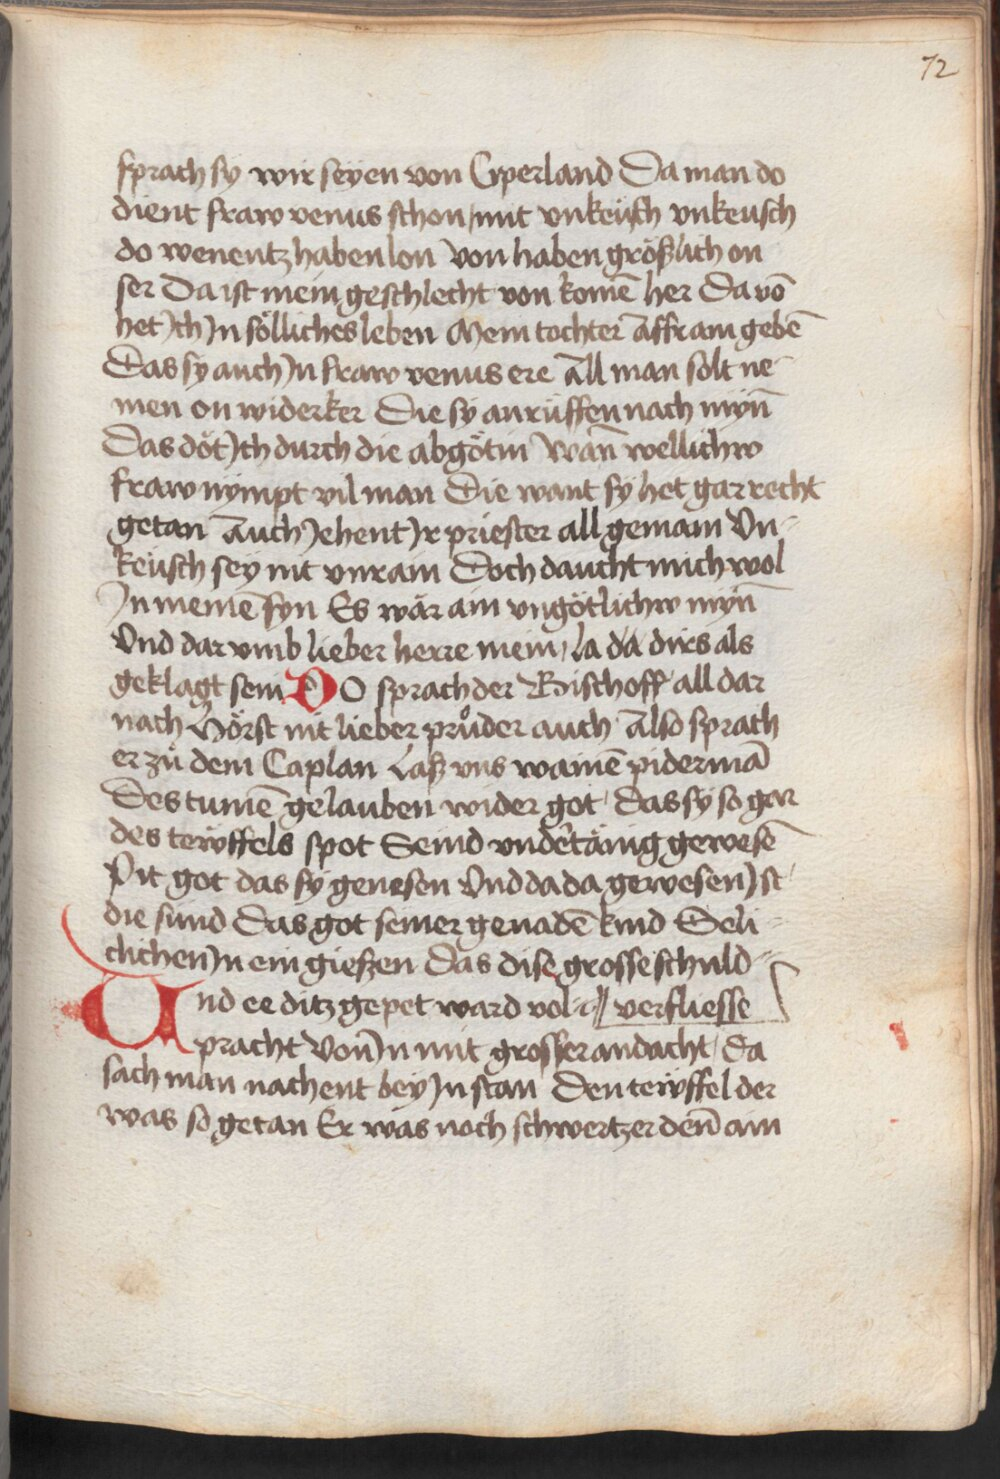 72
sprach sy wir seyen von Cyperland Da man do
dient fraw venus schon / mit vnkeüsch vnkeusch
do wenentz haben lon Von haben größlich on
ser Da ist mein geschlecht von komē her Da vō
het Ich In söllichs leben Mein tochter affram gebē
Das sy auch In fraw venus ere All man solt ne-
men on widerker Die sy anrüffen nach myn̄
Das döt Ich durch die abgötin Wan̄ wellichw
fraw nympt vil man Die want sy het gar recht
getan Auch Jehent Ir priester all gemain Vn-
keüsch sey nit vnrain Doch daucht mich wol
In meinē syn Es wär ain vngötlichw myn̄
Vnd dar vmb lieber herre mein / la da dirs als
geklagt sein DO sprach der Bischoff all dar
nach Hörst nit lieber průder auch Also sprach
er zů dem Caplan Lasz vns wainē pidermā
Des tumē gelauben wider got / das sy so gar
des tewffels spot Seind vndertänig gewesē
Pit got das sy genesen Vnd da da gewesen Ist
die sünd Das got seiner genadē kind Seli-
clichen In ein gieszen Das dise grosse schuld-
Vnd ee ditz gepet ward vol- // verfliesse
pracht Von In mit grosser andacht / Da
sach man nachent bey In stan Den tewffel der
was so getan Er was noch schwertzer den̄ ain